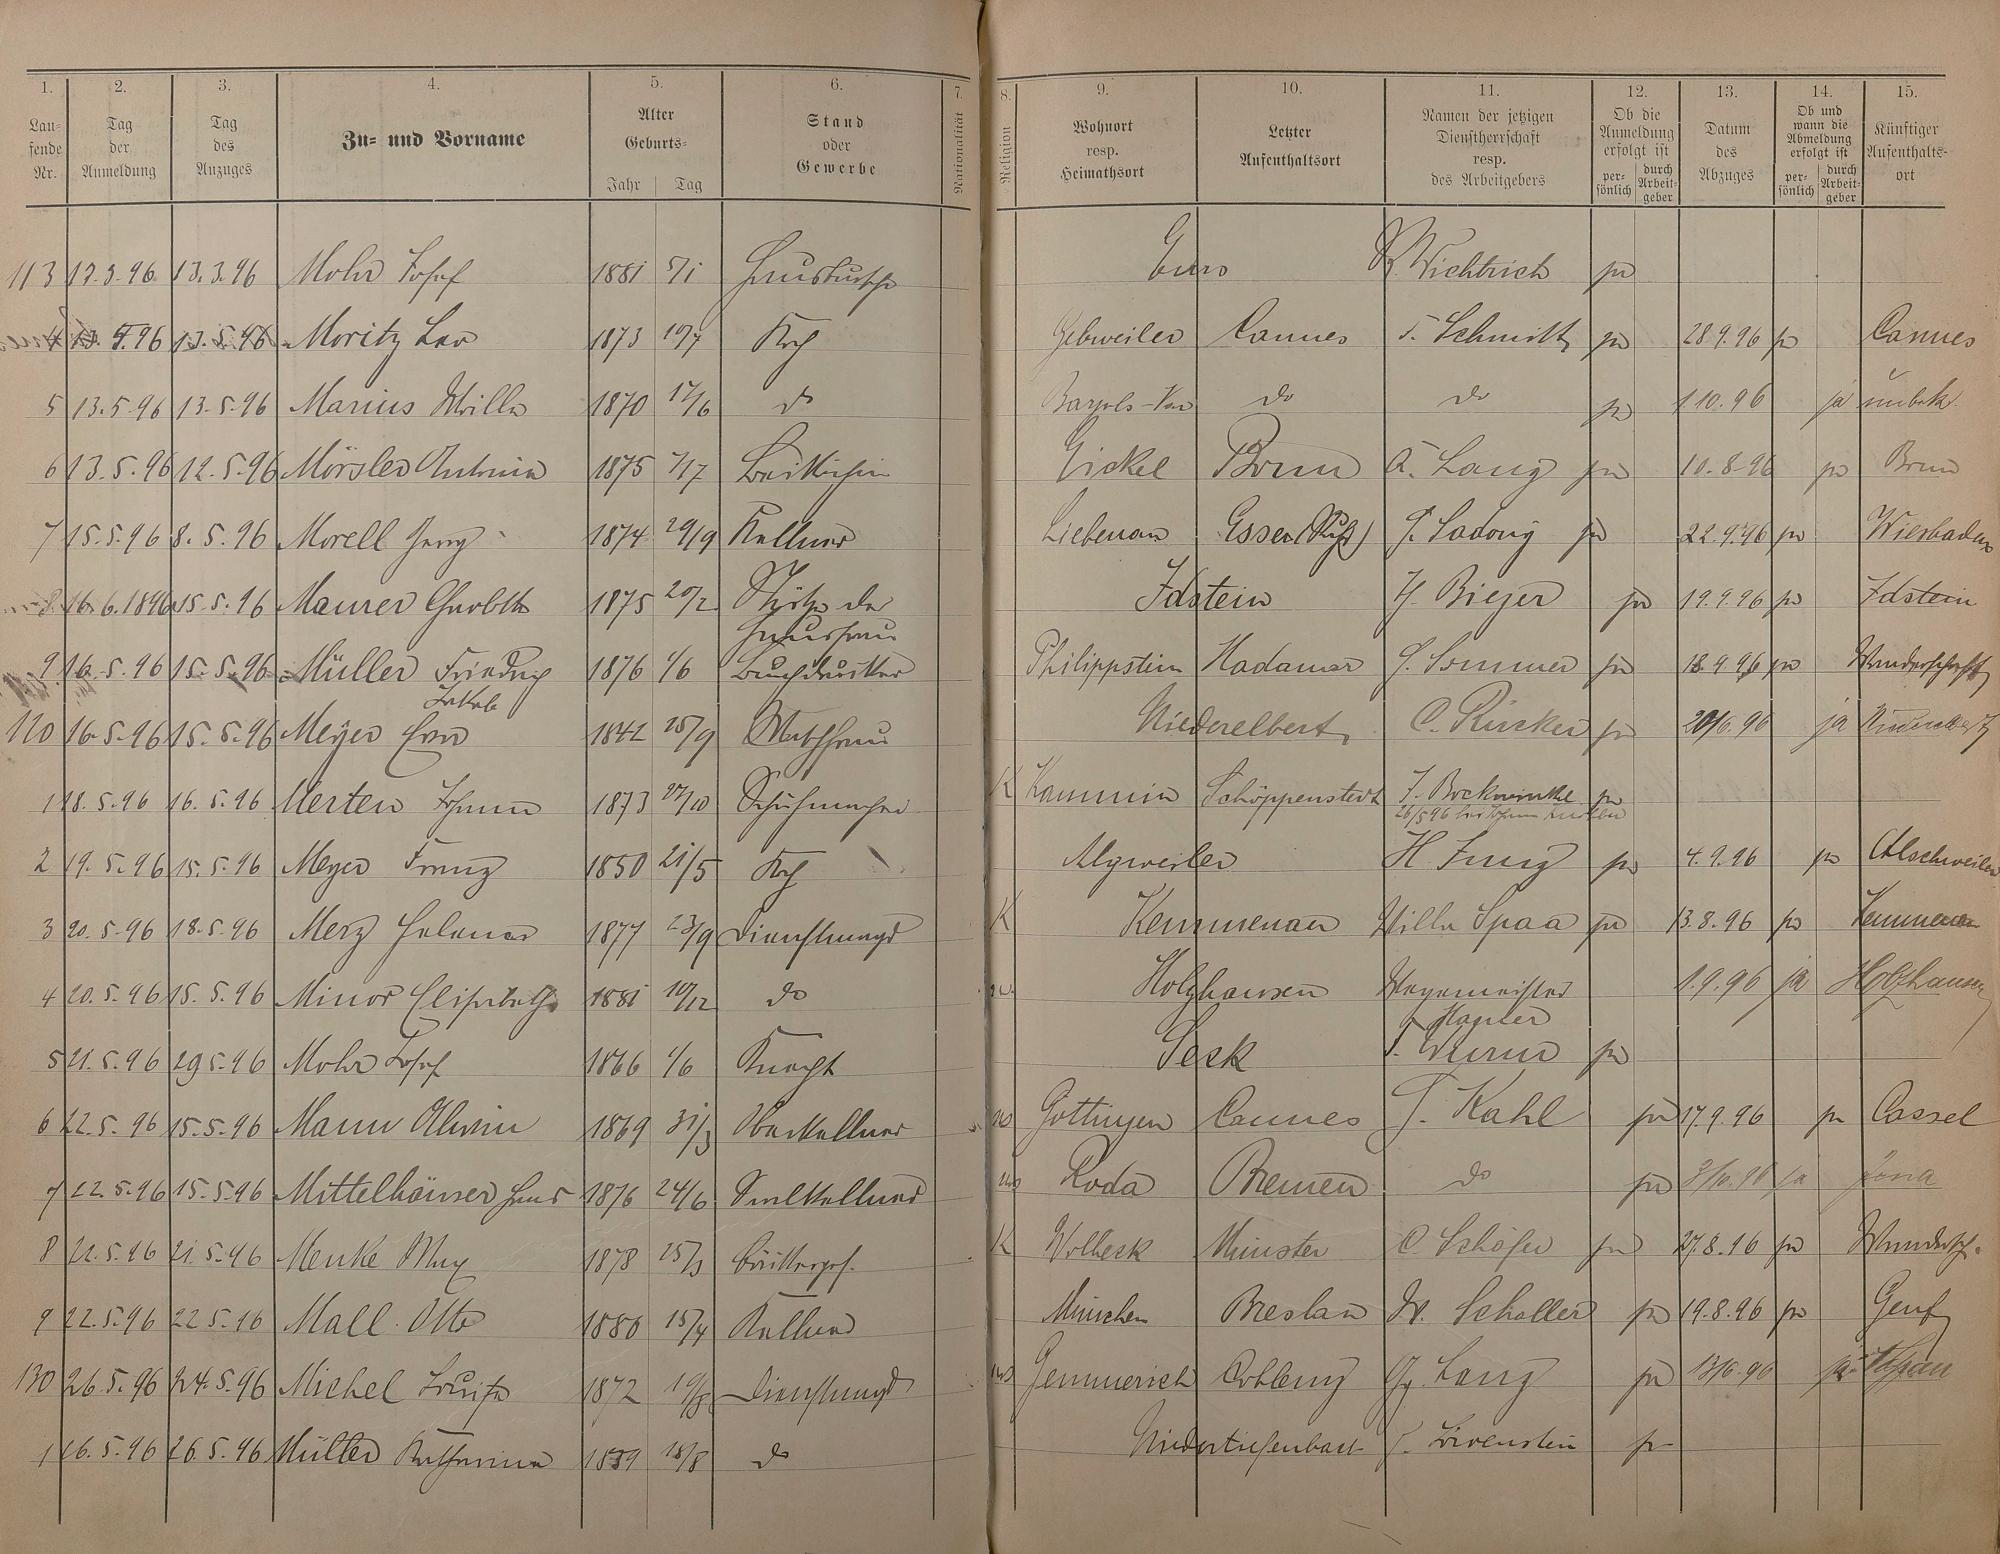 1. 2. 3. 4. 5. 6. 7. 8. 9. 10. 11. 12. 13. 14. 15.
Lau-
fende
Nr.
Tag
der
Anmeldung
Tag
des
Anzuges
Zu- und Vorname
Alter
Geburts-
Jahr Tag
Stand
oder
Gewerbe
Nationalität
Religion
Wohnort
resp.
Heimathsort
Letzter
Aufenthaltsort
Namen der jetzigen
Dienstherrschaft
resp.
des Arbeitgebers
Ob die
Anmeldung
erfolgt ist
per-
sönlich
durch
Arbeit-
geber
Datum
des
Abzuges
Ob und
wann die
Abmeldung
erfolgt ist
per-
sönlich
durch
Arbeit-
geber
Künftiger
Aufenthalts-
ort
113 13.3.96 Mohr Josef 1881 5/1 Hausbursche Ems Wichtrich ja
4 Moritz Leo 1873 10/7 Koch Gebweiler Cannes F. Schmitt ja 28.9.96 ja Cannes
5 13.5.96 13.5.96 Marius 1870 17/6 do do do ja 1.10.96 ja unbek.
6 13.5.96 12.5.96 Mörsler Antonia 1875 7/17 Beiköchin Eickel Bonn A. Lang ja 10.8.96 ja Bonn
7 15.5.96 8.5.96 Morell Georg 1874 29/9 Kellner Liebenau Essen (Ruhr) ja 22.9.96 ja Wiesbaden
8 16.6.1896 15.5.96 Maurer 1875 20/2 Stütze der
Hausfrau Idstein H. Bieger ja 19.9.96 ja Idstein
9 16.5.96 15.5.96 Müller Friedrich
Jakob 1876 1/6 Buchdrucker Philippstein Hadamar Sommer ja 18.9.96 ja Wanderschaft
120 16.5.96 15.5.96 Meyer Eva 1842 25/9 Waschfrau Niederelbert C. Rücker ja 20/6.96 ja Niederelbert
1 18.5.96 16.5.96 Merten Johann 1873 27/10 Schuhmacher K Kammin Schöppenstedt ja
2 19.5.96 15.5.96 Meyer Franz 1850 21/5 Koch Algweiler H. Jung ja 4.9.96 ja Alschweiler
3 20.5.96 18.5.96 Merz Helena 1877 23/9 Dienstmagd K Kemmenau Villa Spaa ja 13.8.96 ja Kemmenau
4 20.5.96 15.5.96 Minor Elisabeth 1881 10/12 do Holzhausen Wegemeister
1.9.96 ja Holzhausen
5 21.5.96 29.5.96 Mohr Josef 1866 1/6 Knecht Seck ja
6 22.5.96 15.5.96 Mann Alwin 1869 31/3 Oberkellner Göttingen Cannes F. Kahl ja 17.9.96 ja Cassel
7 22.5.96 15.5.96 Mittelhäuser Hans 1876 24/6 Saalkellner Roda Bremen do ja ja Jena
8 22.5.96 21.5.96 Menke Max 1878 25/3 K Wolbeck Münster C. Schäfer ja 27.8.96 ja Wandersch.
9 22.5.96 22.5.96 Mall Otto 1880 15/4 Kellner München Breslau W. Scholler ja 19.8.96 ja Genf
130 26.5.96 24.5.96 Michel Louise 1872 19/8 Dienstmagd Gemmerich Coblenz Lang ja 13/6.96 ja
1 26.5.96 26.5.96 Müller Katharina 18/8 do Niedertiefenbach Löwenstein ja